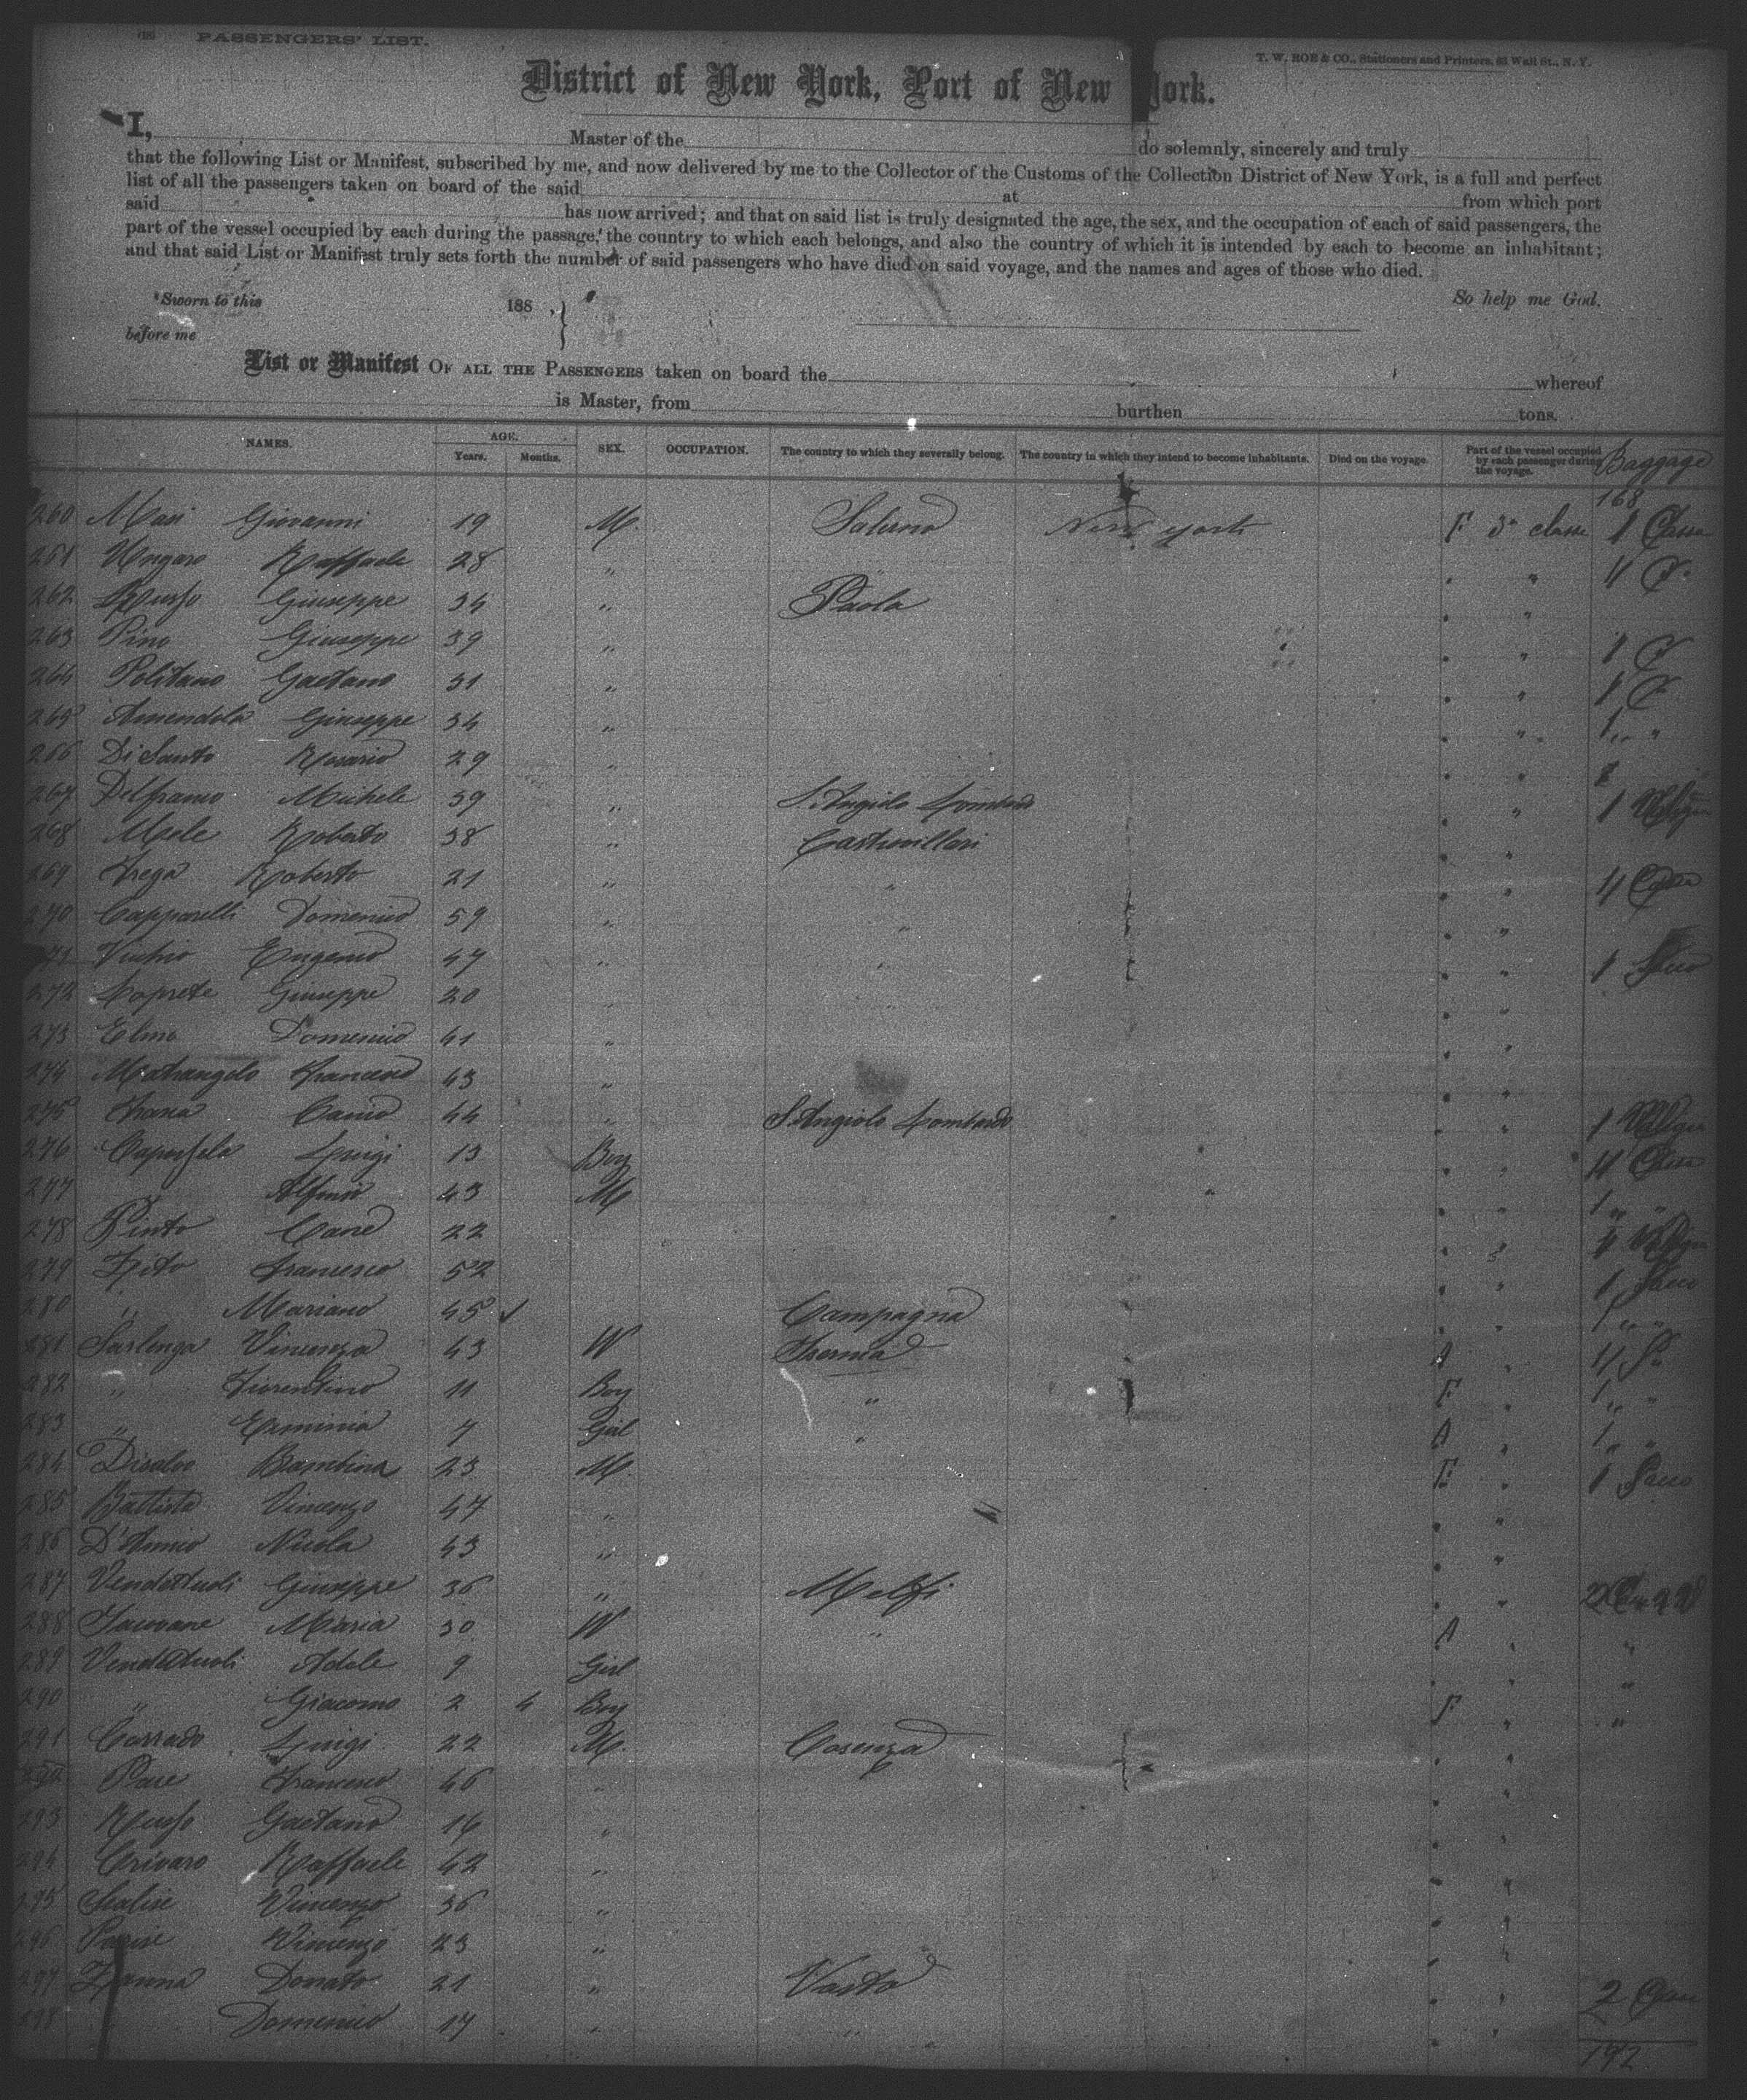 PASSENGERS' LIST.
T. W. ROE & CO., Stationers and Printers, 82 Wall St., N. Y.
District of New York, Port of New York.
I, Master of the do solemnly, sincerely and truly
that the following List or Manifest, subscribed by me, and now delivered by me to the Collector of the Customs of the Collection District of New York, is a full and perfect
list of all the passengers taken on board of the said at from which port
said has now arrived; and that on said list is truly designated the age, the sex, and the occupation of each of said passengers, the
part of the vessel occupied by each during the passage, the country to which each belongs, and also the country of which it is intended by each to become an inhabitant;
and that said List or Manifest truly sets forth the number of said passengers who have died on said voyage, and the names and ages of those who died.
Sworn to this 188 , } So help me God.
before me
List or Manifest OF ALL THE PASSENGERS taken on board the whereof
is Master, from burthen tons.
NAMES. AGE. Years. Months. SEX. OCCUPATION. The country to which they severally belong. The country in which they intend to become inhabitants. Died on the voyage. Part of the vessel occupied by each passenger during the voyage. Baggage
168
260 Masi Giovanni 19 M. Salerno New York F 3a classe 1 Cassa
261 Ungaro Raffaele 28 " " "
262 Russo Giuseppe 34 " Paola " "
263 Pino Giuseppe 39 " " " 1
264 Politano Gaetano 31 " " " 1
265 Amendola Giuseppe 34 " " " 1 " "
266 Di Santo Rosario 29 " " "
267 Delfranco Michele 39 " S. Angiolo Lombardo " " 1
268 Mele Roberto 38 " Castrovillari " "
269 Frega Roberto 21 " " " "
270 Capparelli Domenico 59 " " " "
271 Vischio Eugenio 47 " " " " 1 Sacco
272 Loprete Giuseppe 20 " " "
273 Elmo Domenico 41 " " "
274 Matrangolo Francesco 43 " " "
275 Frasca Canio 44 " S. Angiolo Lombardo " " 1
276 Capossela Luigi 13 Boy " "
277 Alfonso 43 M " " 1 " "
278 Pinto Cane 22 " "
279 Zito Francesco 52 " " 1 Sacco
280 " Mariano 45 Campagna " " 1 " "
281 Sarlenga Vincenza 43 W Isernia A "
282 " Fiorentino 11 Boy " F " 1 " "
283 " Erminia 7 Girl " A " 1 " "
284 Disalvo Bambina 23 M. F " 1 Sacco
285 Battista Vincenzo 47 " " "
286 D'Amico Nicola 43 " " "
287 Vendittuoli Giuseppe 36 " Melfi " "
288 Iacovone Maria 30 W " A " "
289 Vendittuoli Adele 9 Girl " " "
290 " Giacomo 2 4 Boy F " "
291 Corrado Luigi 22 M. Cosenza " "
292 Pace Francesco 46 " " "
293 Russo Gaetano 16 " " "
294 Crivaro Raffaele 42 " " "
295 Scalise Vincenzo 36 " " "
296 Parise Vincenzo 23 " " "
297 Zanna Donato 21 " Vasto " " 2
298 Domenico 17 " " " "
192